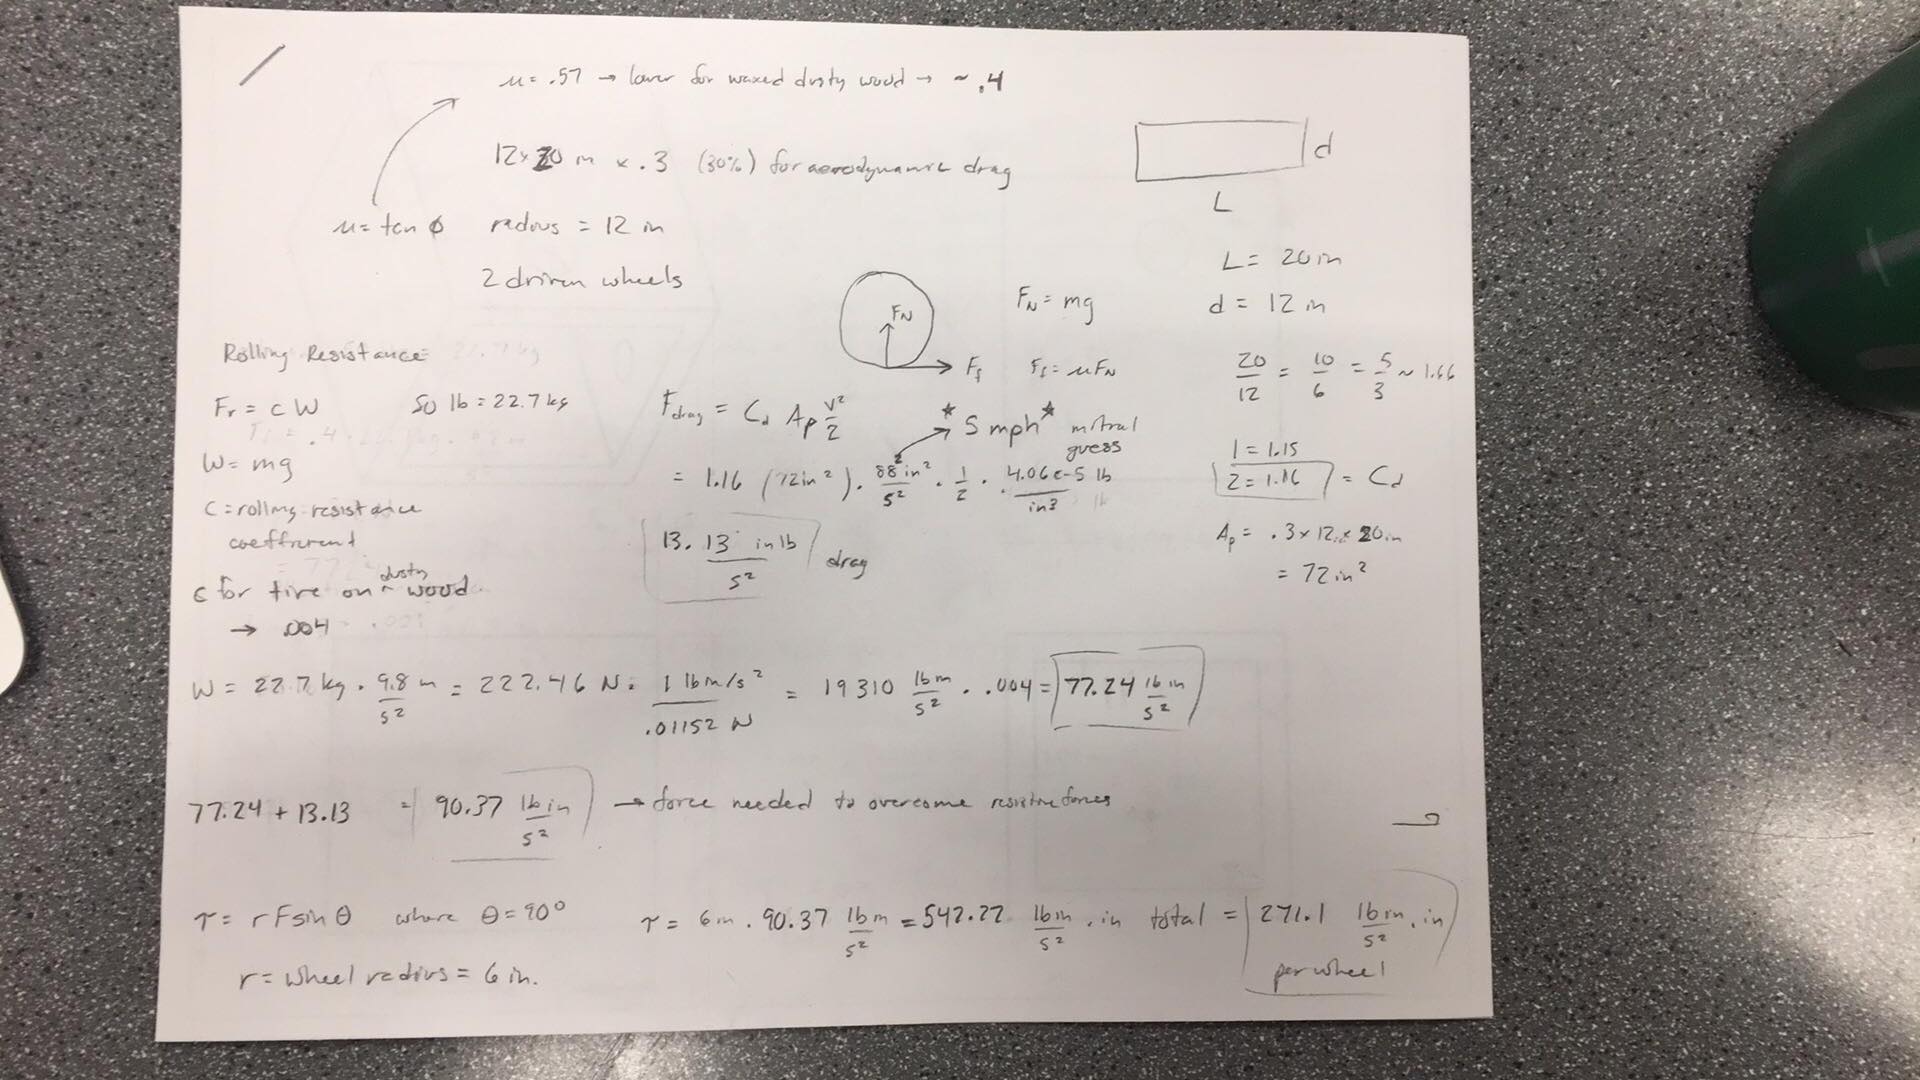 μ = .57 → lower for waxed dusty wood → ~ .4
12 x 20 in x .3 (30%) for aerodynamic drag
d
L
μ = tan ϕ
radius = 12 in
2 driven wheels
L = 20 in
d = 12 in
FN
Ff
FN = mg
Ff = μFN
20/12 = 10/6 = 5/3 ~ 1.66
Rolling Resistance:
Fr = c W
50 lb = 22.7 kg
W = mg
c = rolling resistance
coefficient
c for tire on ^ dusty wood
→ .004
Fdrag = Cd Ap v²/2
* 5 mph * initial
guess
= 1.16 (72 in²) · 88² in²/s² · 1/2 · 4.06e-5 lb/in3
13.13 in lb/s² drag
1 = 1.15
2 = 1.16 = Cd
Ap = .3 x 12 in x 20 in
= 72 in²
W = 22.7 kg · 9.8 m/s² = 222.46 N · 1 lb in/s²/.01152 N = 19310 lb in/s² · .004 = 77.24 lb in/s²
77.24 + 13.13 = 90.37 lb in/s² → force needed to overcome resistive forces
τ = r F sin θ where θ = 90°
r = wheel radius = 6 in.
τ = 6 in · 90.37 lb in/s² = 542.22 lb in/s² · in total = 271.1 lb in/s² · in
per wheel